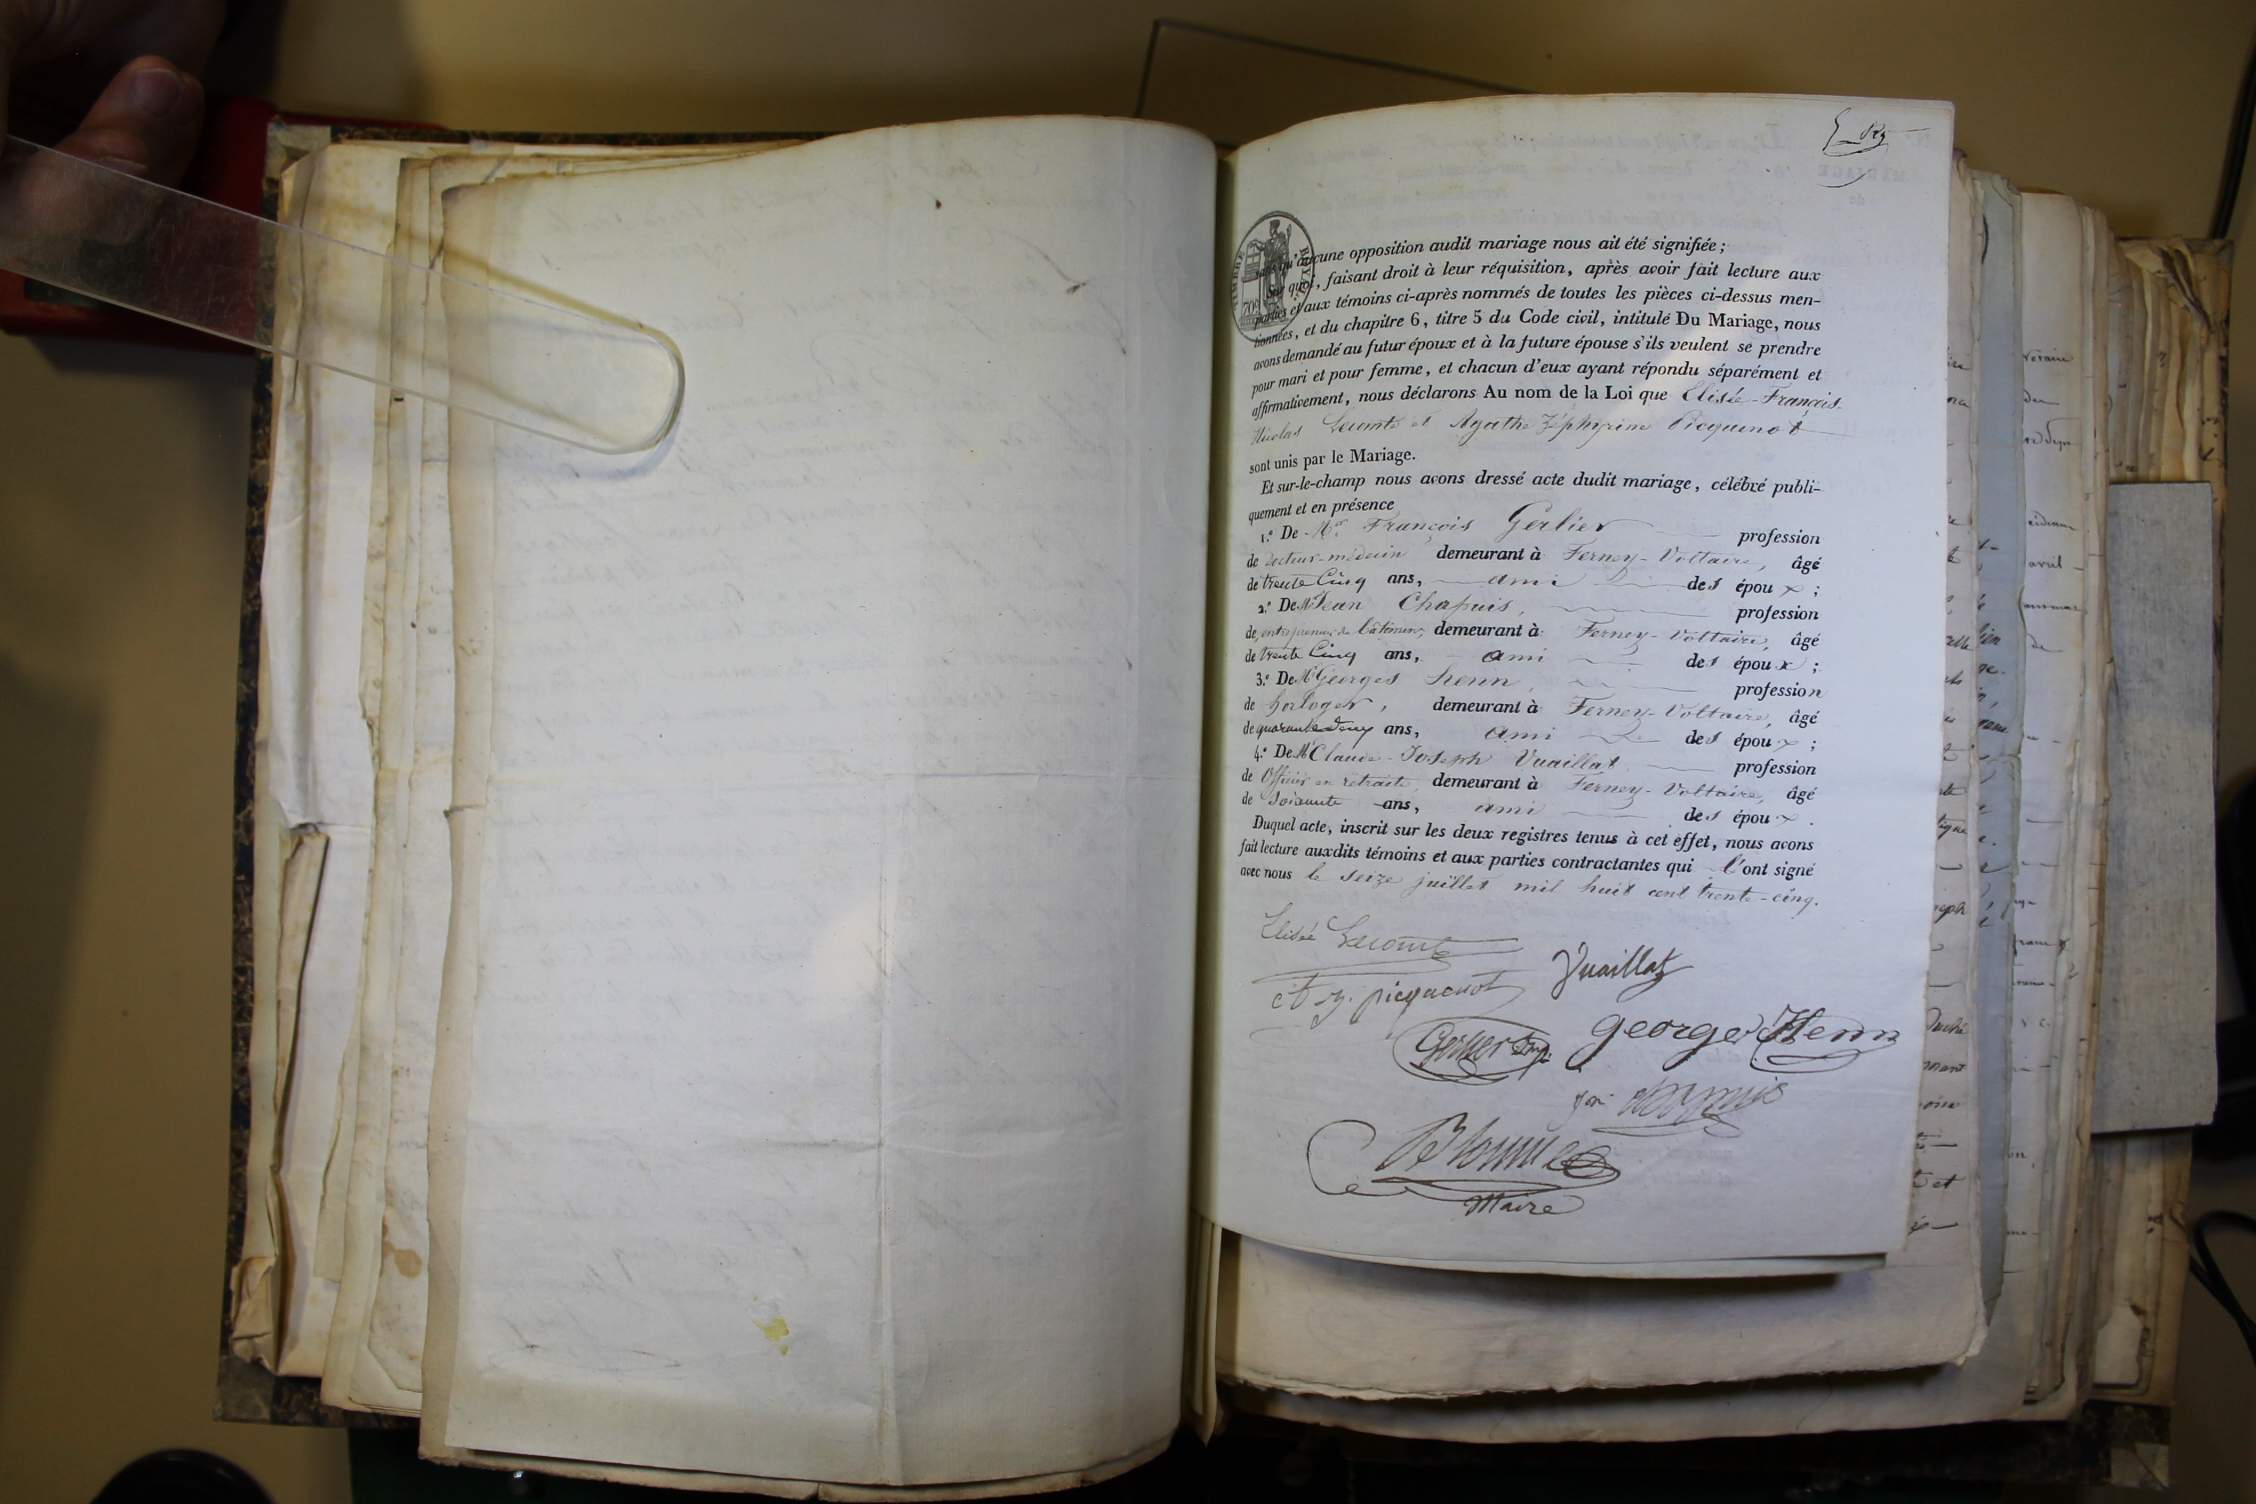 TIMBRE ROYAL
70c
sans qu'aucune opposition audit mariage nous ait été signifiée ;
Sur quoi, faisant droit à leur réquisition, après avoir fait lecture aux
parties et aux témoins ci-après nommés de toutes les pièces ci-dessus men-
tionnées, et du chapitre 6, titre 5 du Code civil, intitulé Du Mariage, nous
avons demandé au futur époux et à la future épouse s'ils veulent se prendre
pour mari et pour femme, et chacun d'eux ayant répondu séparément et
affirmativement, nous déclarons Au nom de la Loi que Elisée-François-
Nicolas Lecomte et Agathe Zéphyrine Picquenot
sont unis par le Mariage.
Et sur-le-champ nous avons dressé acte dudit mariage, célébré publi-
quement et en présence
1.° De Mr. François Gerlier profession
de docteur-médecin demeurant à Ferney-Voltaire, âgé
de trente Cinq ans, ami des époux ;
2.° De Mr Jean Chapuis, profession
de entrepreneur de bâtimens demeurant à Ferney-Voltaire, âgé
de trente Cinq ans, ami des époux ;
3.° De Mr Georges Henn, profession
de horloger, demeurant à Ferney-Voltaire, âgé
de quarante deux ans, ami des époux ;
4.° De Mr Claude-Joseph Vuaillat profession
de Officier en retraite, demeurant à Ferney-Voltaire, âgé
de soixante ans, ami des époux.
Duquel acte, inscrit sur les deux registres tenus à cet effet, nous avons
fait lecture auxdits témoins et aux parties contractantes qui l'ont signé
avec nous le seize juillet mil huit cent trente-cinq.
Elisée Lecomte
picquenot
Vuaillat
Gerlier
George Henn
chapuis
Maire